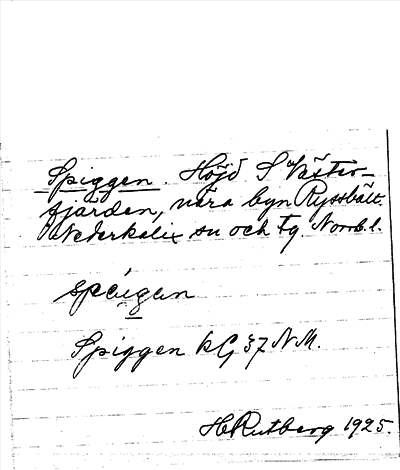 Spiggen. Höjd S Väster-
fjärden, nära byn Ryssbält.
Nederkalix sn och tg. Norrb. l.
speigen
Spiggen kG 37 N.M.
H Rutberg 1925.